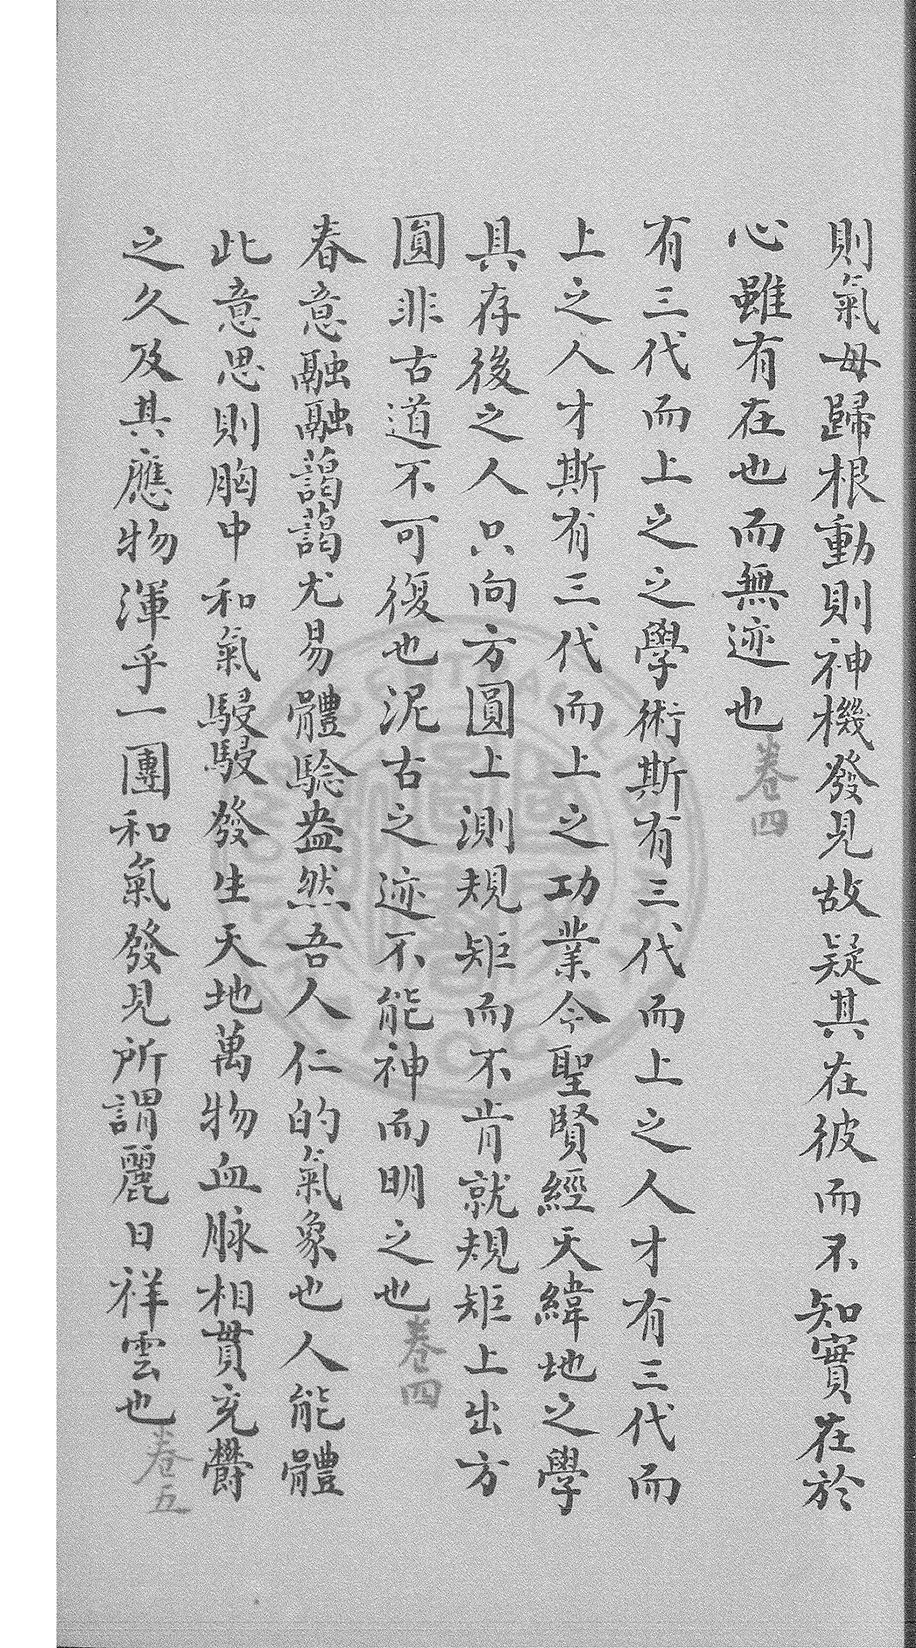 則氣母歸根動則神機發見故疑其在彼而不知實在於
心雖有在也而無迹也卷四
有三代而上之之學術斯有三代而上之人才有三代而
上之人才斯有三代而上之功業今聖賢經天緯地之學
具存後之人只向方圓上測規矩而不肯就規矩上出方
圓非古道不可復也泥古之迹不能神而明之也卷四
春意融融藹藹尤易體驗盎然吾人仁的氣象也人能體
此意思則胸中和氣駸駸發生天地萬物血脉相貫充欝
之久及其應物渾乎一團和氣發見所謂麗日祥雲也卷五